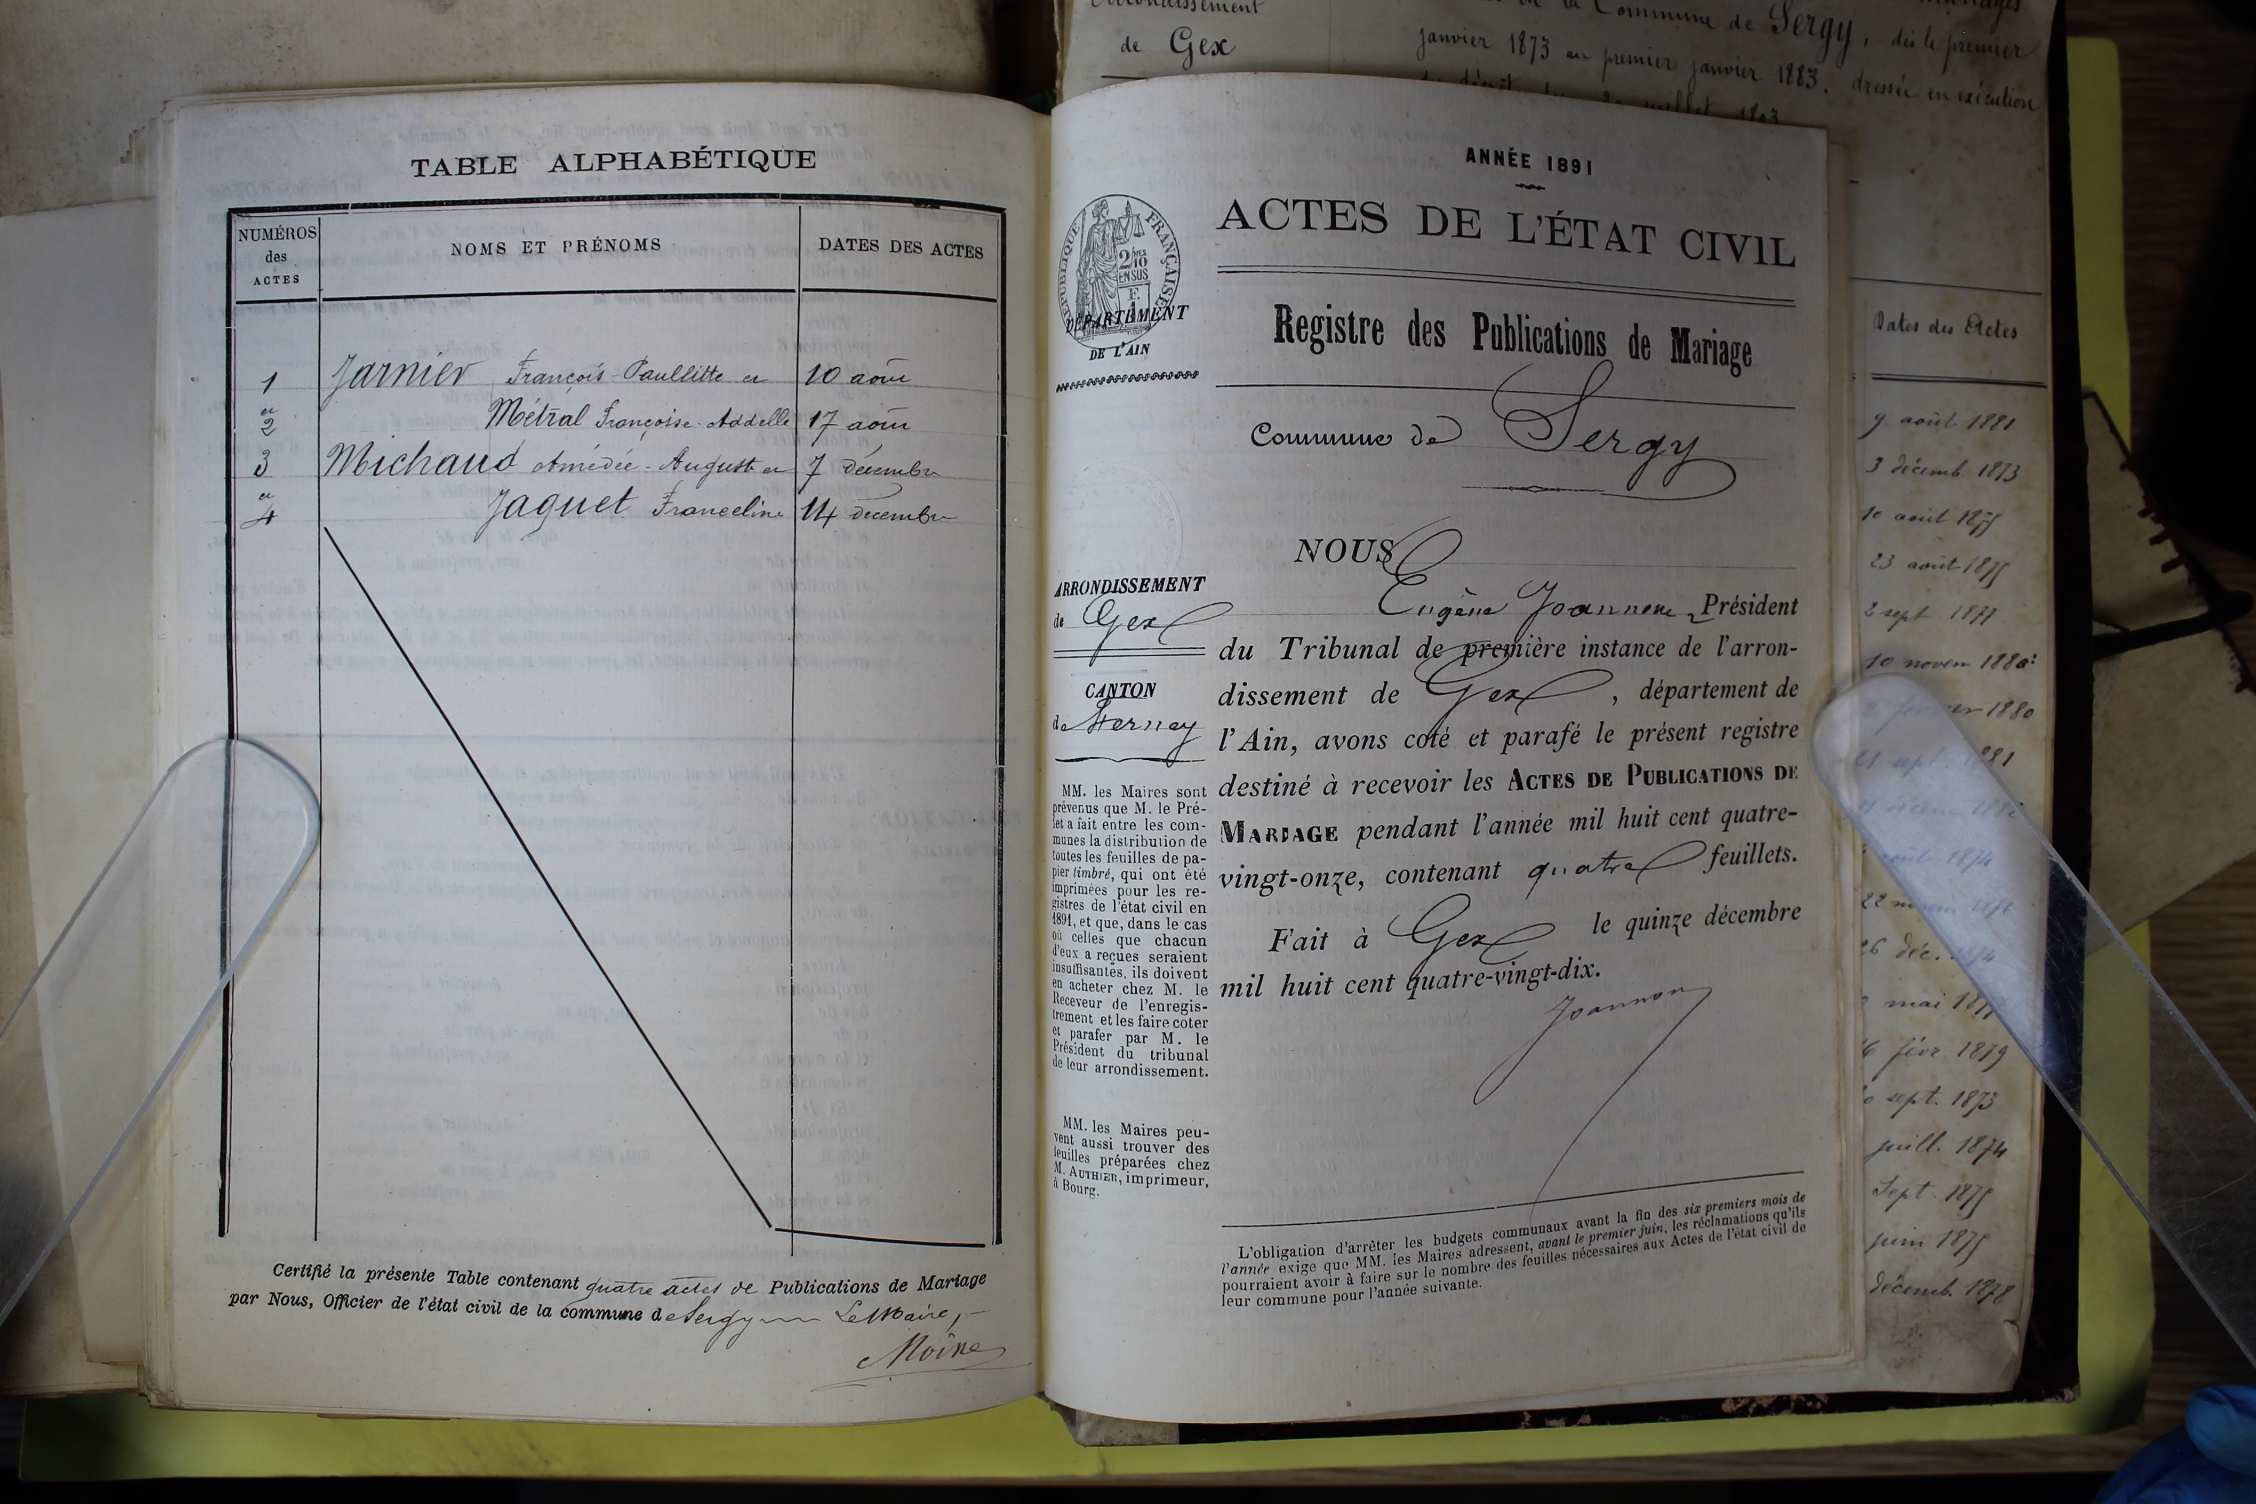 TABLE ALPHABÉTIQUE
NUMÉROS des ACTES
NOMS ET PRÉNOMS
DATES DES ACTES
1 Jarnier François-Paullitte et 10 août
et 2 Métral Françoise-Addelle 17 août
3 Michaud Amédée-Auguste et 7 décembre
et 4 Jaquet Franceline 14 décembre
Certifié la présente Table contenant quatre actes de Publications de Mariage
par Nous, Officier de l'état civil de la commune de Sergy Le Maire,
Moine
Arrondissement
de Gex
de la Commune de Sergy, dès le premier
janvier 1873 au premier janvier 1883. dressée en exécution
ANNÉE 1891
ACTES DE L'ÉTAT CIVIL
RÉPUBLIQUE FRANÇAISE
2/10
EN SUS
DÉPARTEMENT
DE L'AIN
Registre des Publications de Mariage
Commune de Sergy
ARRONDISSEMENT
de Gex
CANTON
de Ferney
MM. les Maires sont
prévenus que M. le Pré-
fet a fait entre les com-
munes la distribution de
toutes les feuilles de pa-
pier timbré, qui ont été
imprimées pour les re-
gistres de l'état civil en
1891, et que, dans le cas
où celles que chacun
d'eux a reçues seraient
insuffisantes, ils doivent
en acheter chez M. le
Receveur de l'enregis-
trement et les faire coter
et parafer par M. le
Président du tribunal
de leur arrondissement.
MM. les Maires peu-
vent aussi trouver des
feuilles préparées chez
M. AUTHIER, imprimeur,
à Bourg.
NOUS
Eugène Joannon, Président
du Tribunal de première instance de l'arron-
dissement de Gex, département de
l'Ain, avons coté et parafé le présent registre
destiné à recevoir les ACTES DE PUBLICATIONS DE
MARIAGE pendant l'année mil huit cent quatre-
vingt-onze, contenant quatre feuillets.
Fait à Gex le quinze décembre
mil huit cent quatre-vingt-dix.
Joannon
L'obligation d'arrêter les budgets communaux avant la fin des six premiers mois de
l'année exige que MM. les Maires adressent, avant le premier juin, les réclamations qu'ils
pourraient avoir à faire sur le nombre des feuilles nécessaires aux Actes de l'état civil de
leur commune pour l'année suivante.
Dates des Actes
9 août 1881
3 décemb. 1873
10 août 1875
23 août 1875
2 sept 1877
10 novem 1880
1880
21 sept. 1881
août 1874
26 déc. 1874
mai 1877
févr. 1879
sept. 1873
juill. 1874
Sept. 1875
juin 1875
décemb. 1878